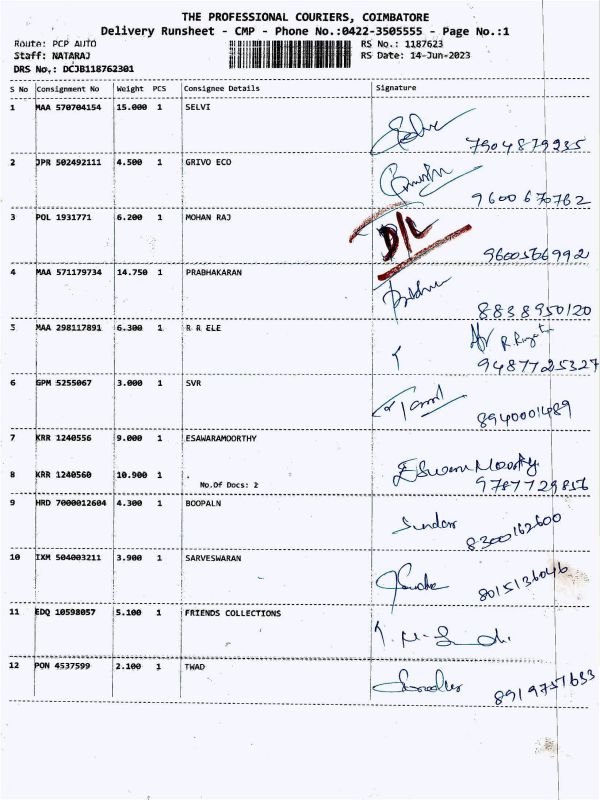 THE PROFESSIONAL COURIERS, COIMBATORE
Delivery Runsheet - CMP - Phone No.:0422-3505555 - Page No.:1
Route: PCP AUTO RS No.: 1187623
Staff: NATARAJ RS Date: 14-Jun-2023
DRS No.: DCJB118762301
S No Consignment No Weight PCS Consignee Details Signature
1 MAA 570704154 15.000 1 SELVI
7904879235
2 JPR 502492111 4.500 1 GRIVO ECO
9600670762
3 POL 1931771 6.200 1 MOHAN RAJ D/L
9600566992
4 MAA 571179734 14.750 1 PRABHAKARAN
8838950120
5 MAA 298117891 6.300 1 R R ELE
9487725327
6 GPM 5255067 3.000 1 SVR
Tamil
8940001489
7 KRR 1240556 9.000 1 ESAWARAMOORTHY
Eswara Moorthy
8 KRR 1240560 10.900 1
No.Of Docs: 2 9787729856
9 HRD 7000012604 4.300 1 BOOPALN
Sundar 8300162600
10 IXM 504003211 3.900 1 SARVESWARAN
8015136046
11 EDQ 10598057 5.100 1 FRIENDS COLLECTIONS
12 PON 4537599 2.100 1 TWAD
8919757633